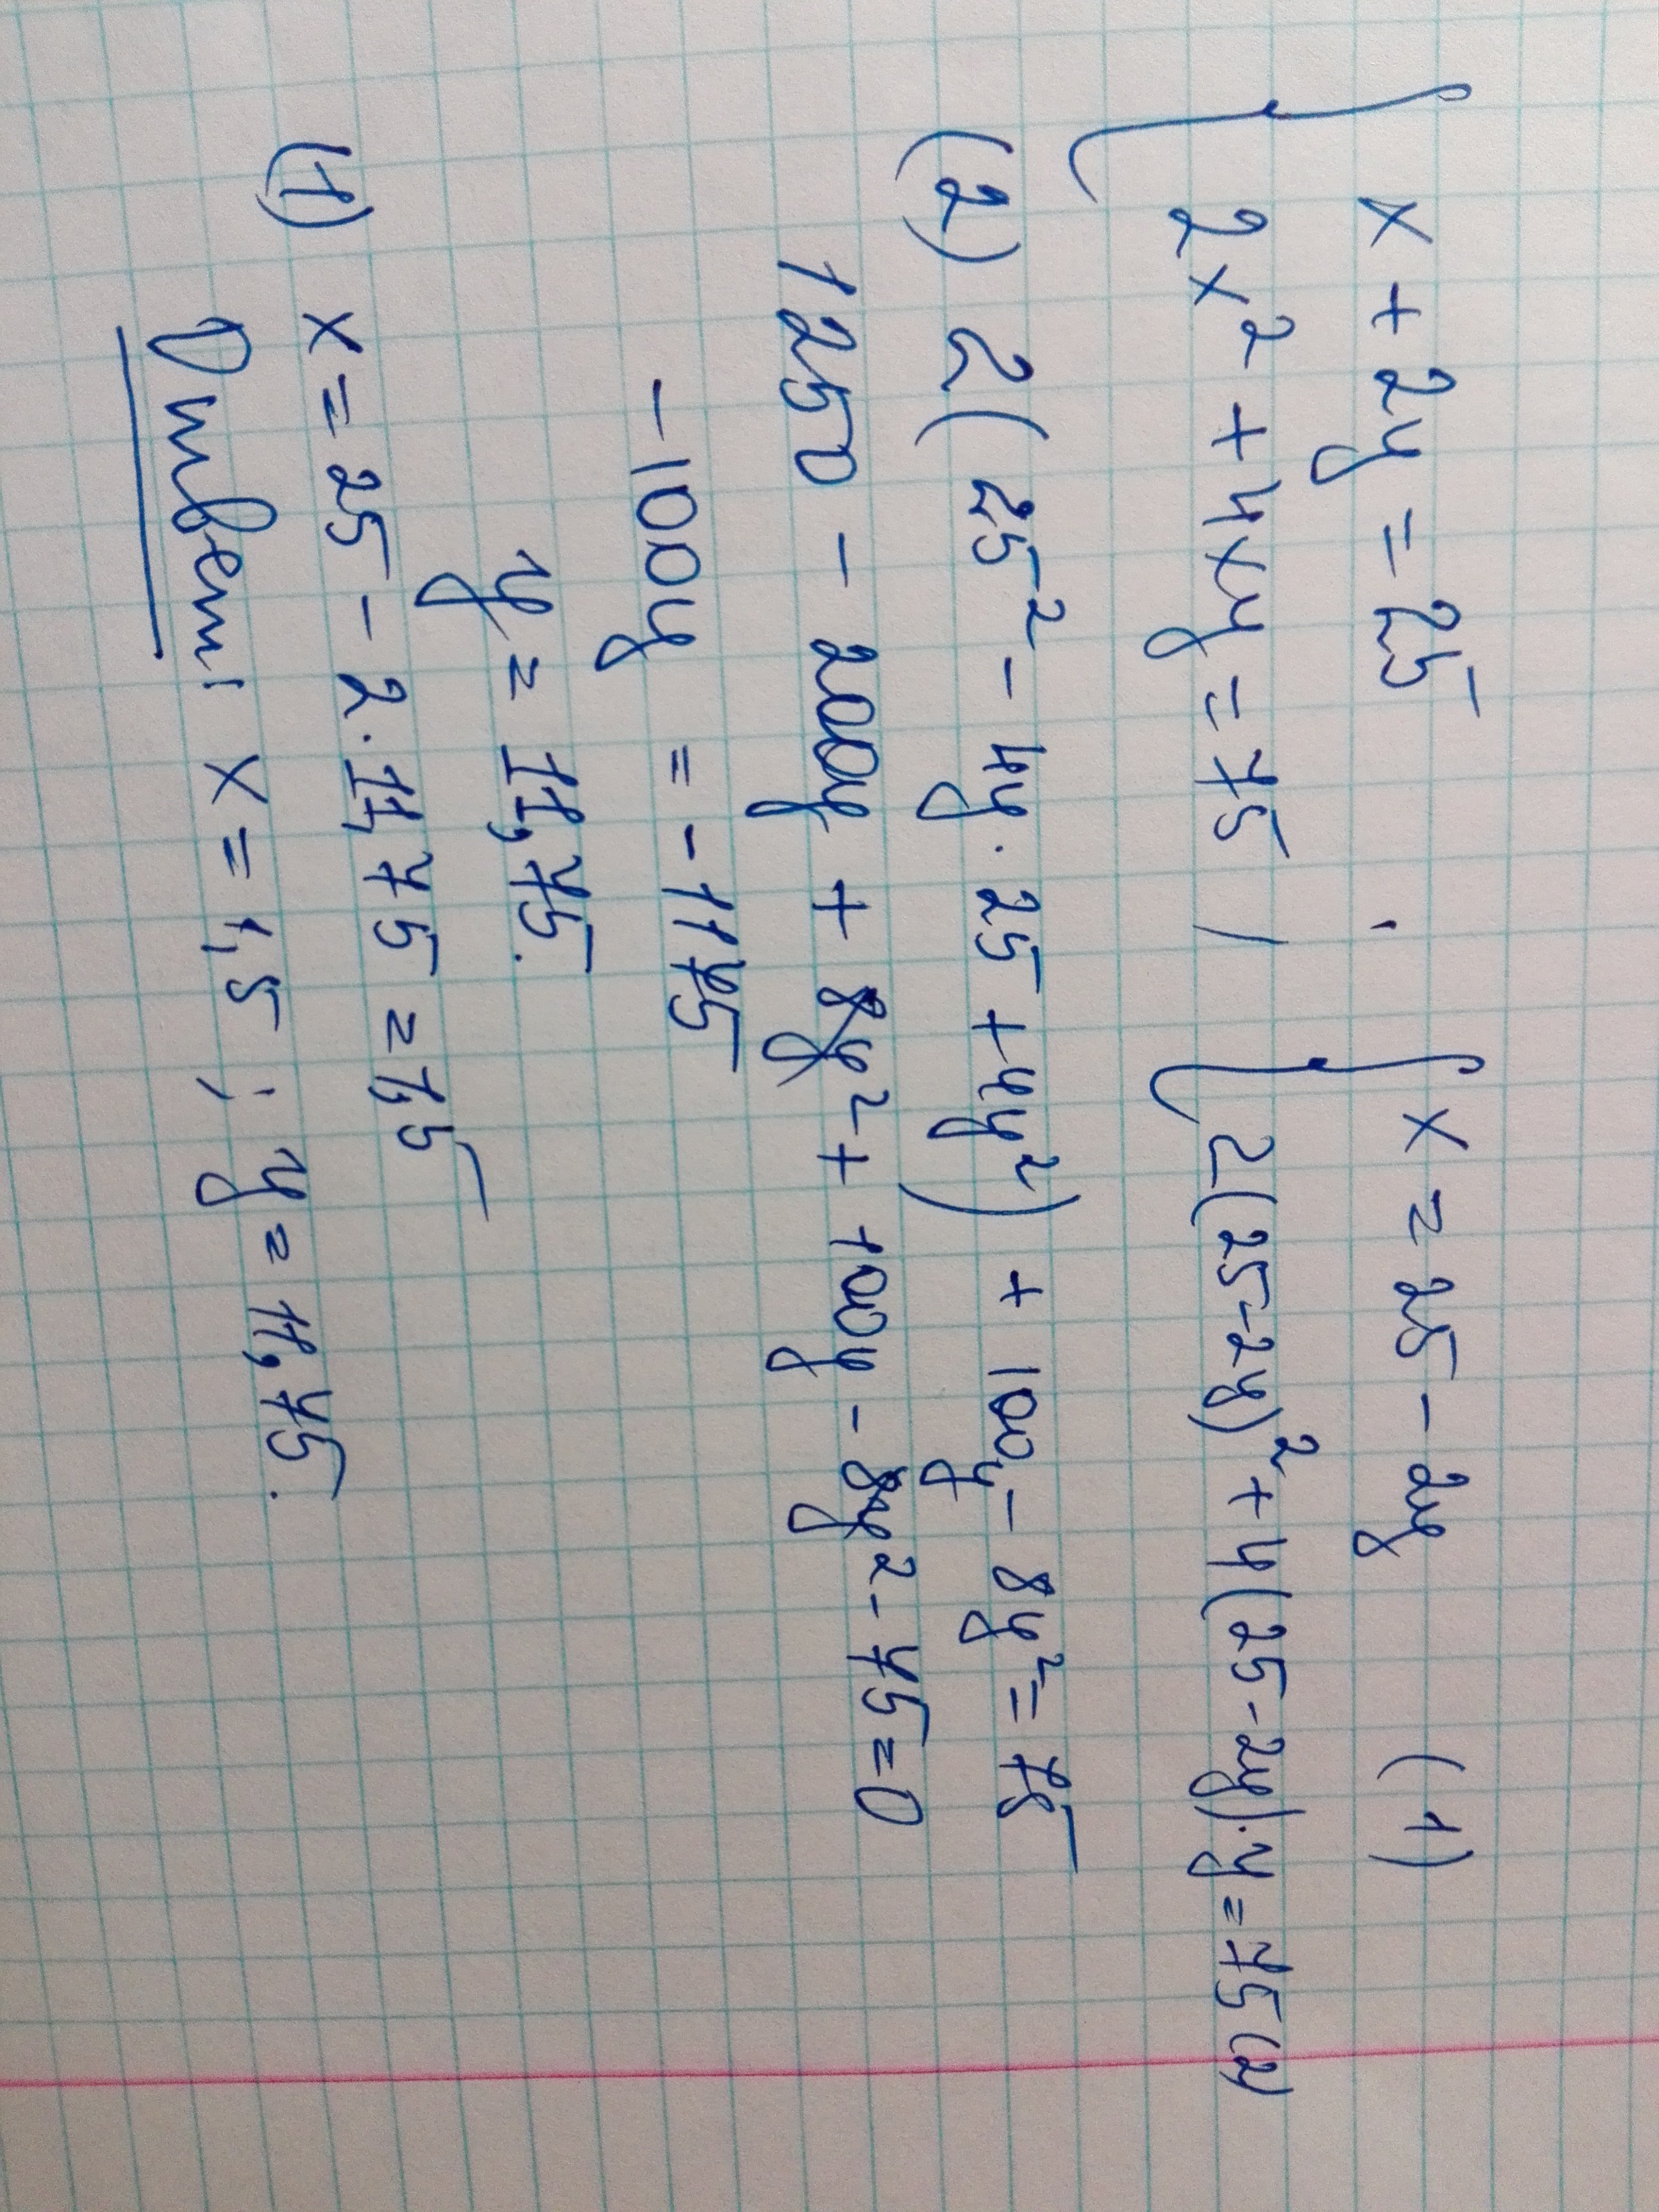 { x + 2y = 25 { x = 25 - 2y (1)
2x² + 4xy = 75 / 2(25-2y)² + 4(25-2y)·y = 75 (2)
(2) 2(25² - 4y·25 + 4y²) + 100y - 8y² = 75
1250 - 200y + 8y² + 100y - 8y² - 75 = 0
-100y = -1175
y = 11,75.
(1) x = 25 - 2·11,75 = 1,5
Ответ: x = 1,5 ; y = 11,75.